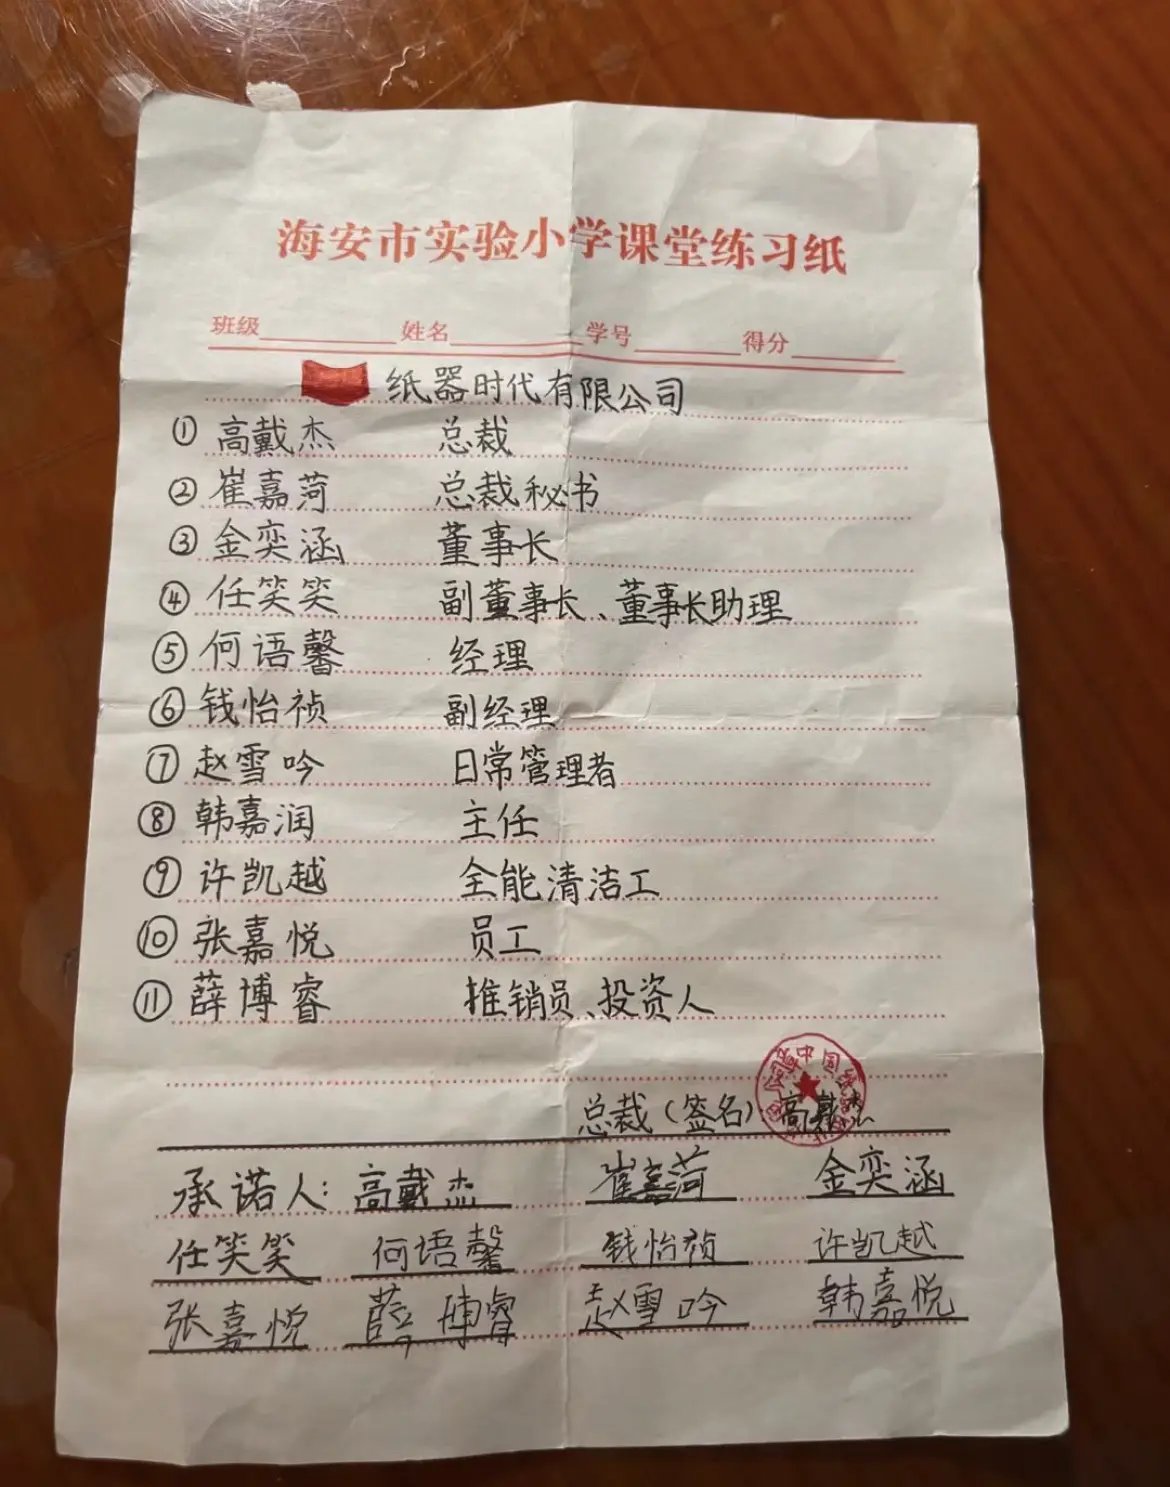 海安市实验小学课堂练习纸
班级 姓名 学号 得分
纸器时代有限公司
① 高戴杰 总裁
② 崔嘉菏 总裁秘书
③ 金奕涵 董事长
④ 任笑笑 副董事长、董事长助理
⑤ 何语馨 经理
⑥ 钱怡祯 副经理
⑦ 赵雪吟 日常管理者
⑧ 韩嘉润 主任
⑨ 许凯越 全能清洁工
⑩ 张嘉悦 员工
⑪ 薛博睿 推销员、投资人
中国纸器
总裁（签名）高戴杰
承诺人：高戴杰 崔嘉菏 金奕涵
任笑笑 何语馨 钱怡祯 许凯越
张嘉悦 薛博睿 赵雪吟 韩嘉悦